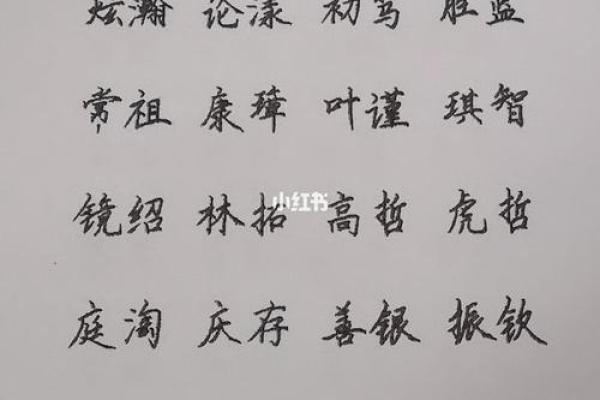 炫瀚 论漾 初笃 胜监
常祖 康璋 叶谨 琪智
镜绍 林拓 高哲 虎哲
小红书
庭淘 庆存 善银 振钦